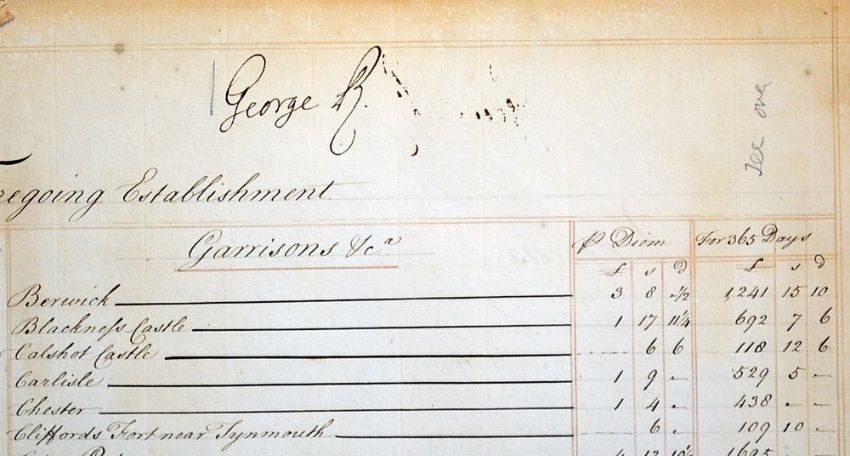 George R.
See over
regoing Establishment.
Garrisons &c.a ⅌ Diem For 365 Days
£ s d £ s d
Berwick 3 8 -½ 1,241 15 10
Blackness Castle 1 17 11¼ 692 7 6
Calshot Castle 6 6 118 12 6
Carlisle 1 9 - 529 5 -
Chester 1 4 - 438 - -
Cliffords Fort near Tynmouth 6 - 109 10 -